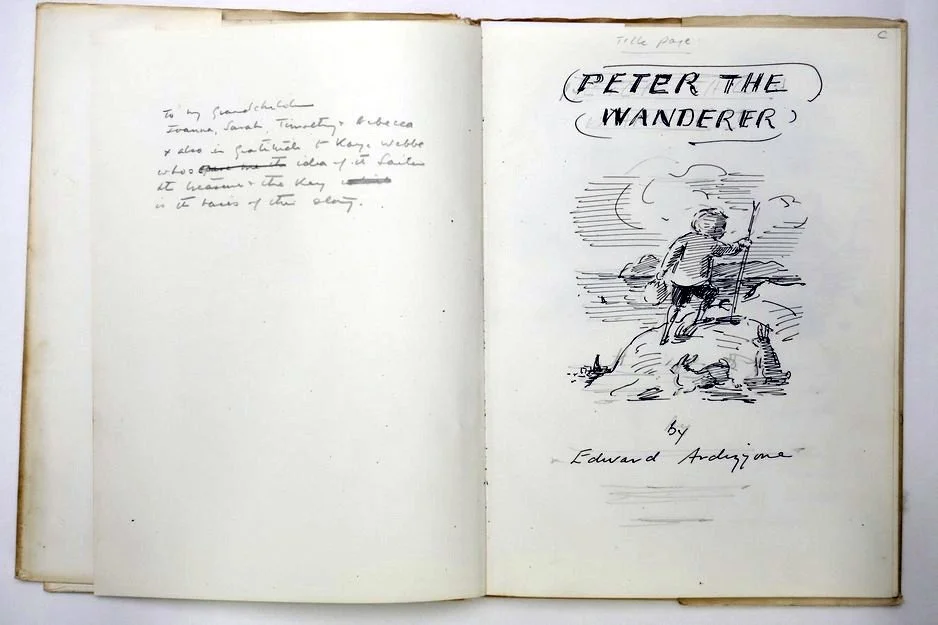 to my Grandchildren
Joanna, Sarah, Timothy & Rebecca
& also in gratitude to Kaye Webb
whose gave me the idea of the Sailor
the treasure & the Key which
is the basis of this story.
Title page
C
PETER THE
WANDERER
by
Edward Ardizzone